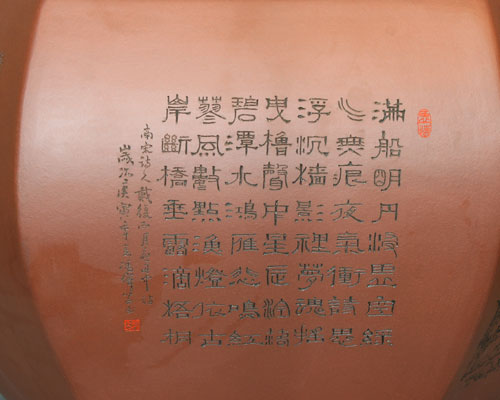 滿船明月浸虛空綠
水無痕夜氣衝詩思
浮沉檣影裡夢魂搖
曳櫓聲中星辰冷落
碧潭水鴻雁悲鳴紅
蓼風數點漁燈依古
岸斷橋垂露滴梧桐
南宋詩人戴復古月夜舟中詩
歲次庚寅